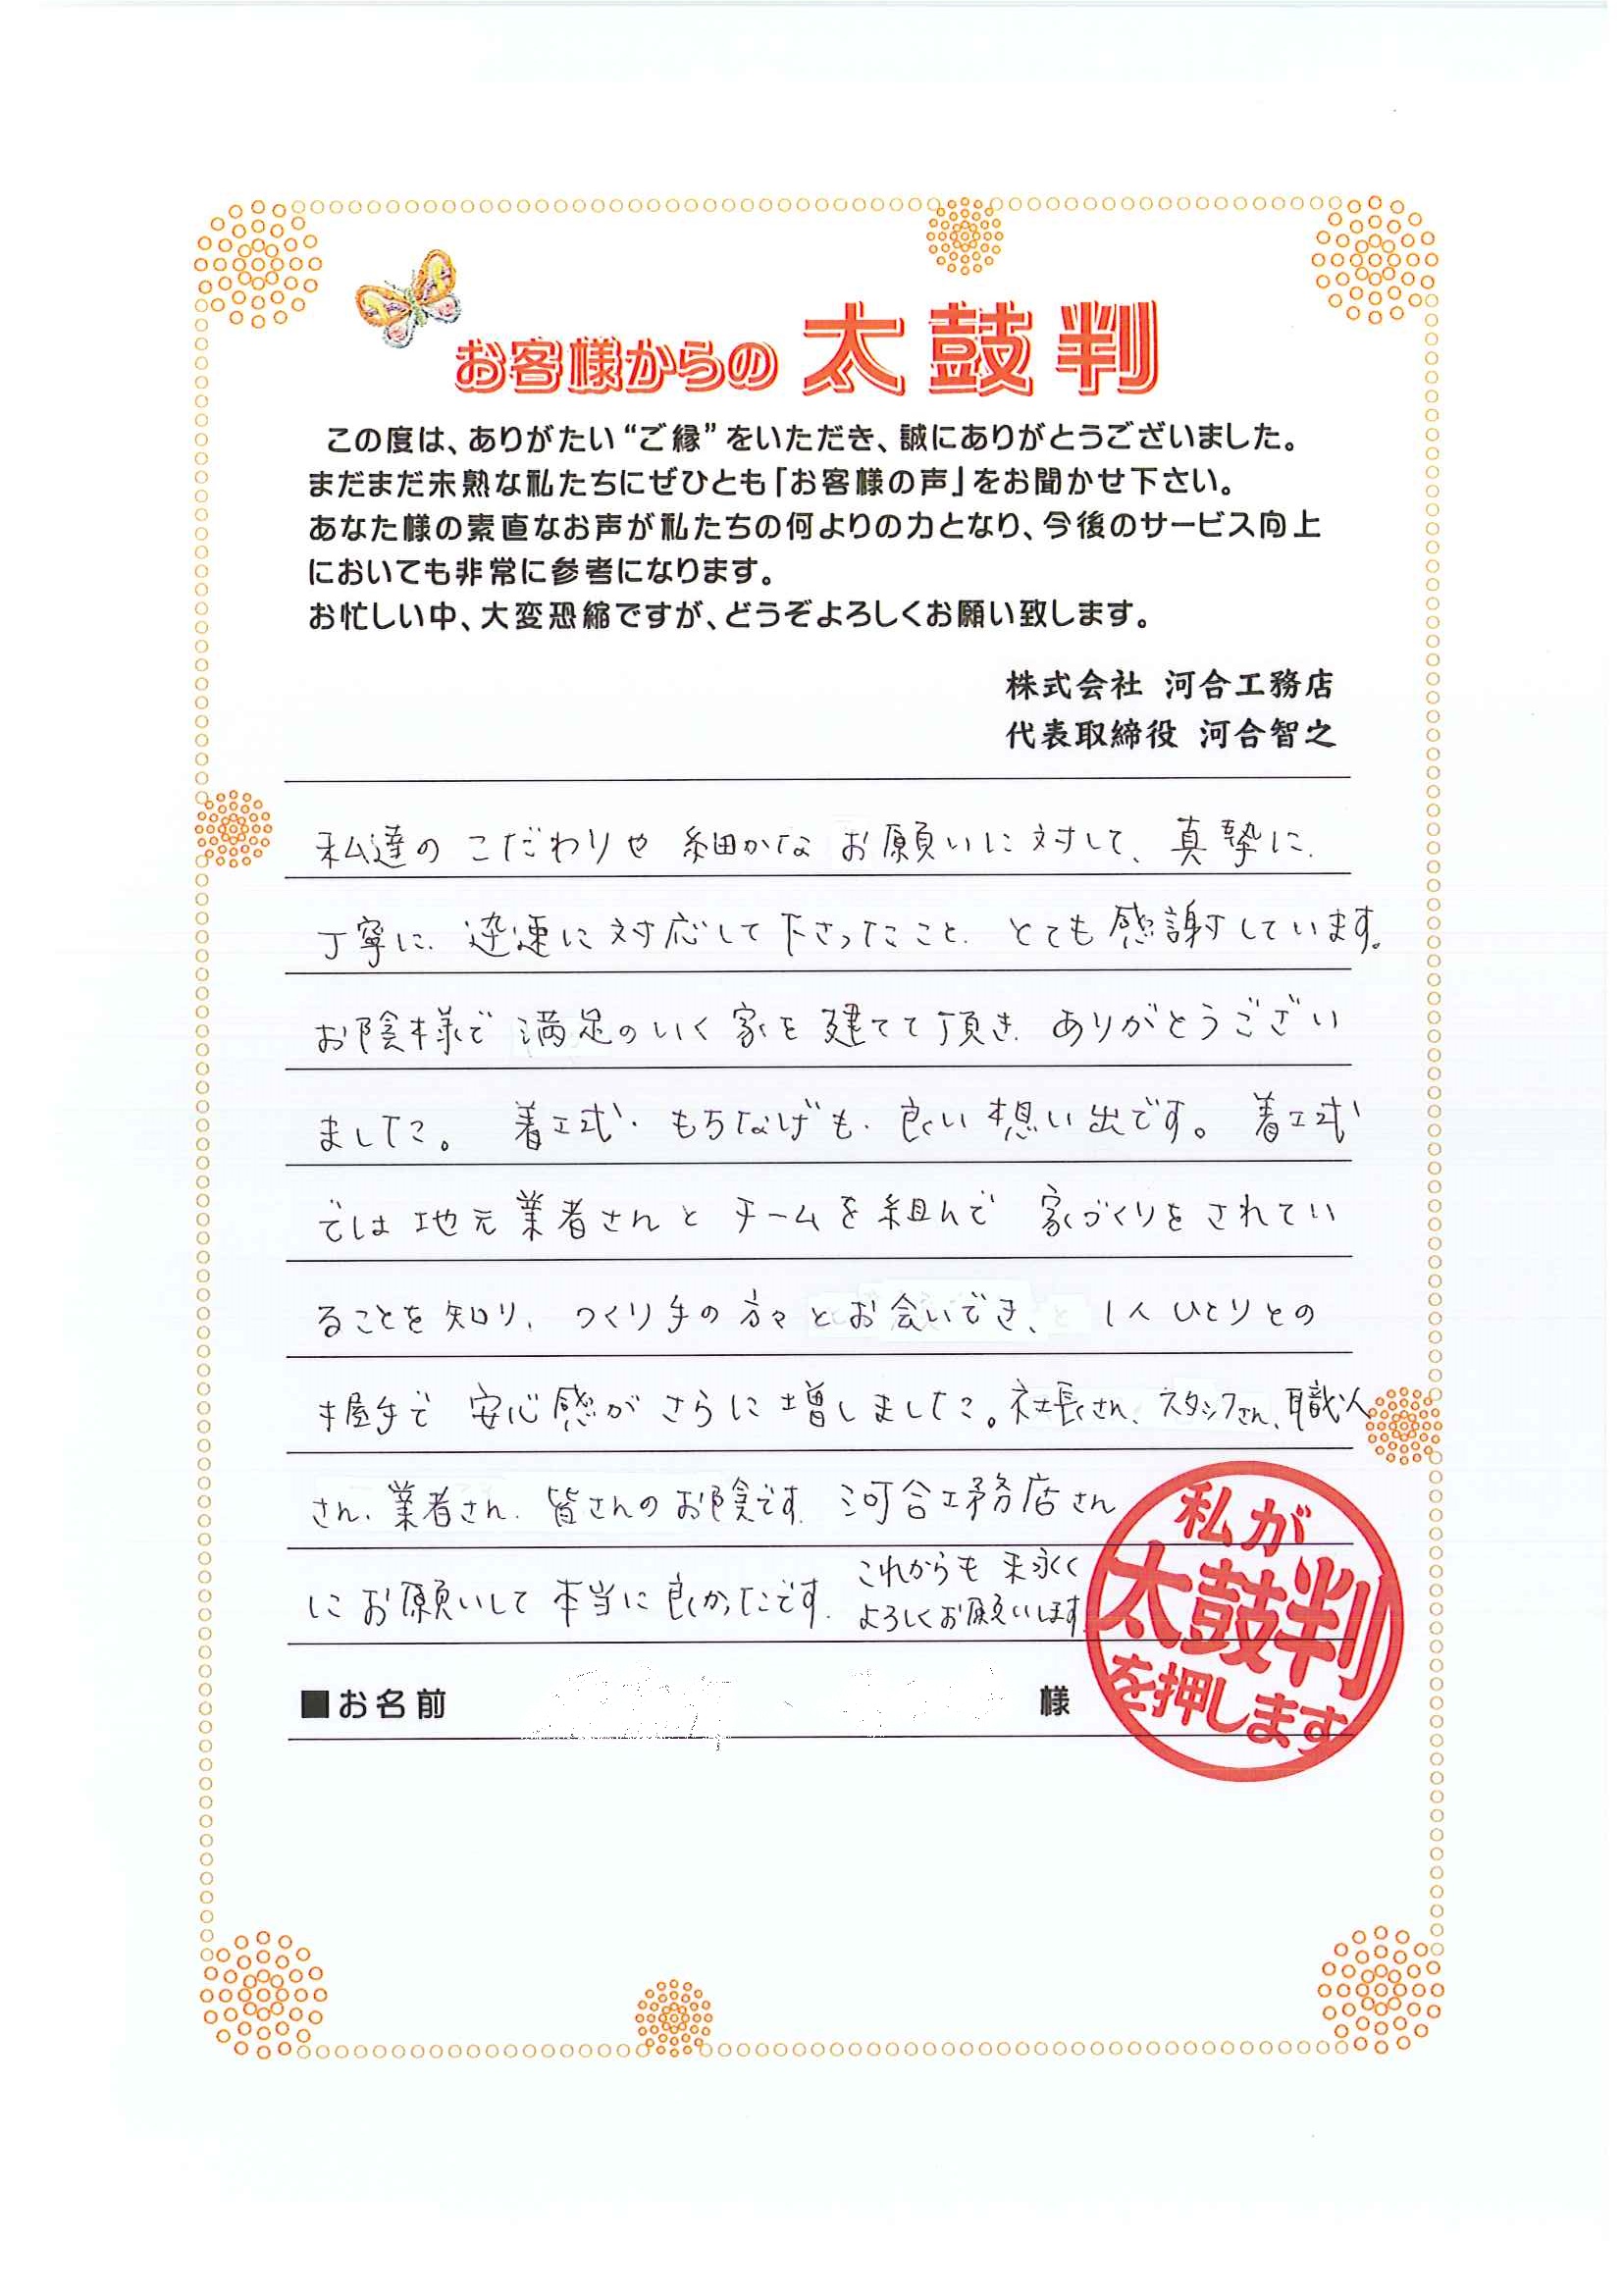 お客様からの 太鼓判
この度は、ありがたい“ご縁”をいただき、誠にありがとうございました。
まだまだ未熟な私たちにぜひとも「お客様の声」をお聞かせ下さい。
あなた様の素直なお声が私たちの何よりの力となり、今後のサービス向上
においても非常に参考になります。
お忙しい中、大変恐縮ですが、どうぞよろしくお願い致します。
株式会社 河合工務店
代表取締役 河合智之
私達の こだわりや 細かな お願いに 対して、真摯に、
丁寧に、迅速に 対応して 下さったこと、とても 感謝しています。
お陰様で 満足のいく 家を 建てて 頂き、ありがとうござい
ました。 着工式・もちなげも、良い 想い 出です。 着工式
では 地元 業者さんと チームを 組んで 家づくりを されてい
ることを 知り、つくり手の 方々と お会いでき、1人ひとりとの
握手で 安心感が さらに 増しました。社長さん、スタッフさん、職人
さん、業者さん、皆さんの お陰です。河合工務店さん
に お願いして 本当に 良かったです。
これからも 末永く
よろしくお願いします。
■お名前 様
私が
太鼓判
を押します